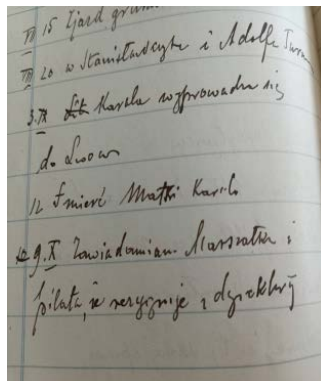 III 15 Zjazd
III 20 w Stanisławczyku i Adolfa
3.IX Karola wyprowadza się
do Lwowa
12 Śmierć Matki Karola
9.X Zawiadamiam Marszałka i
Piłata, że rezygnuję z